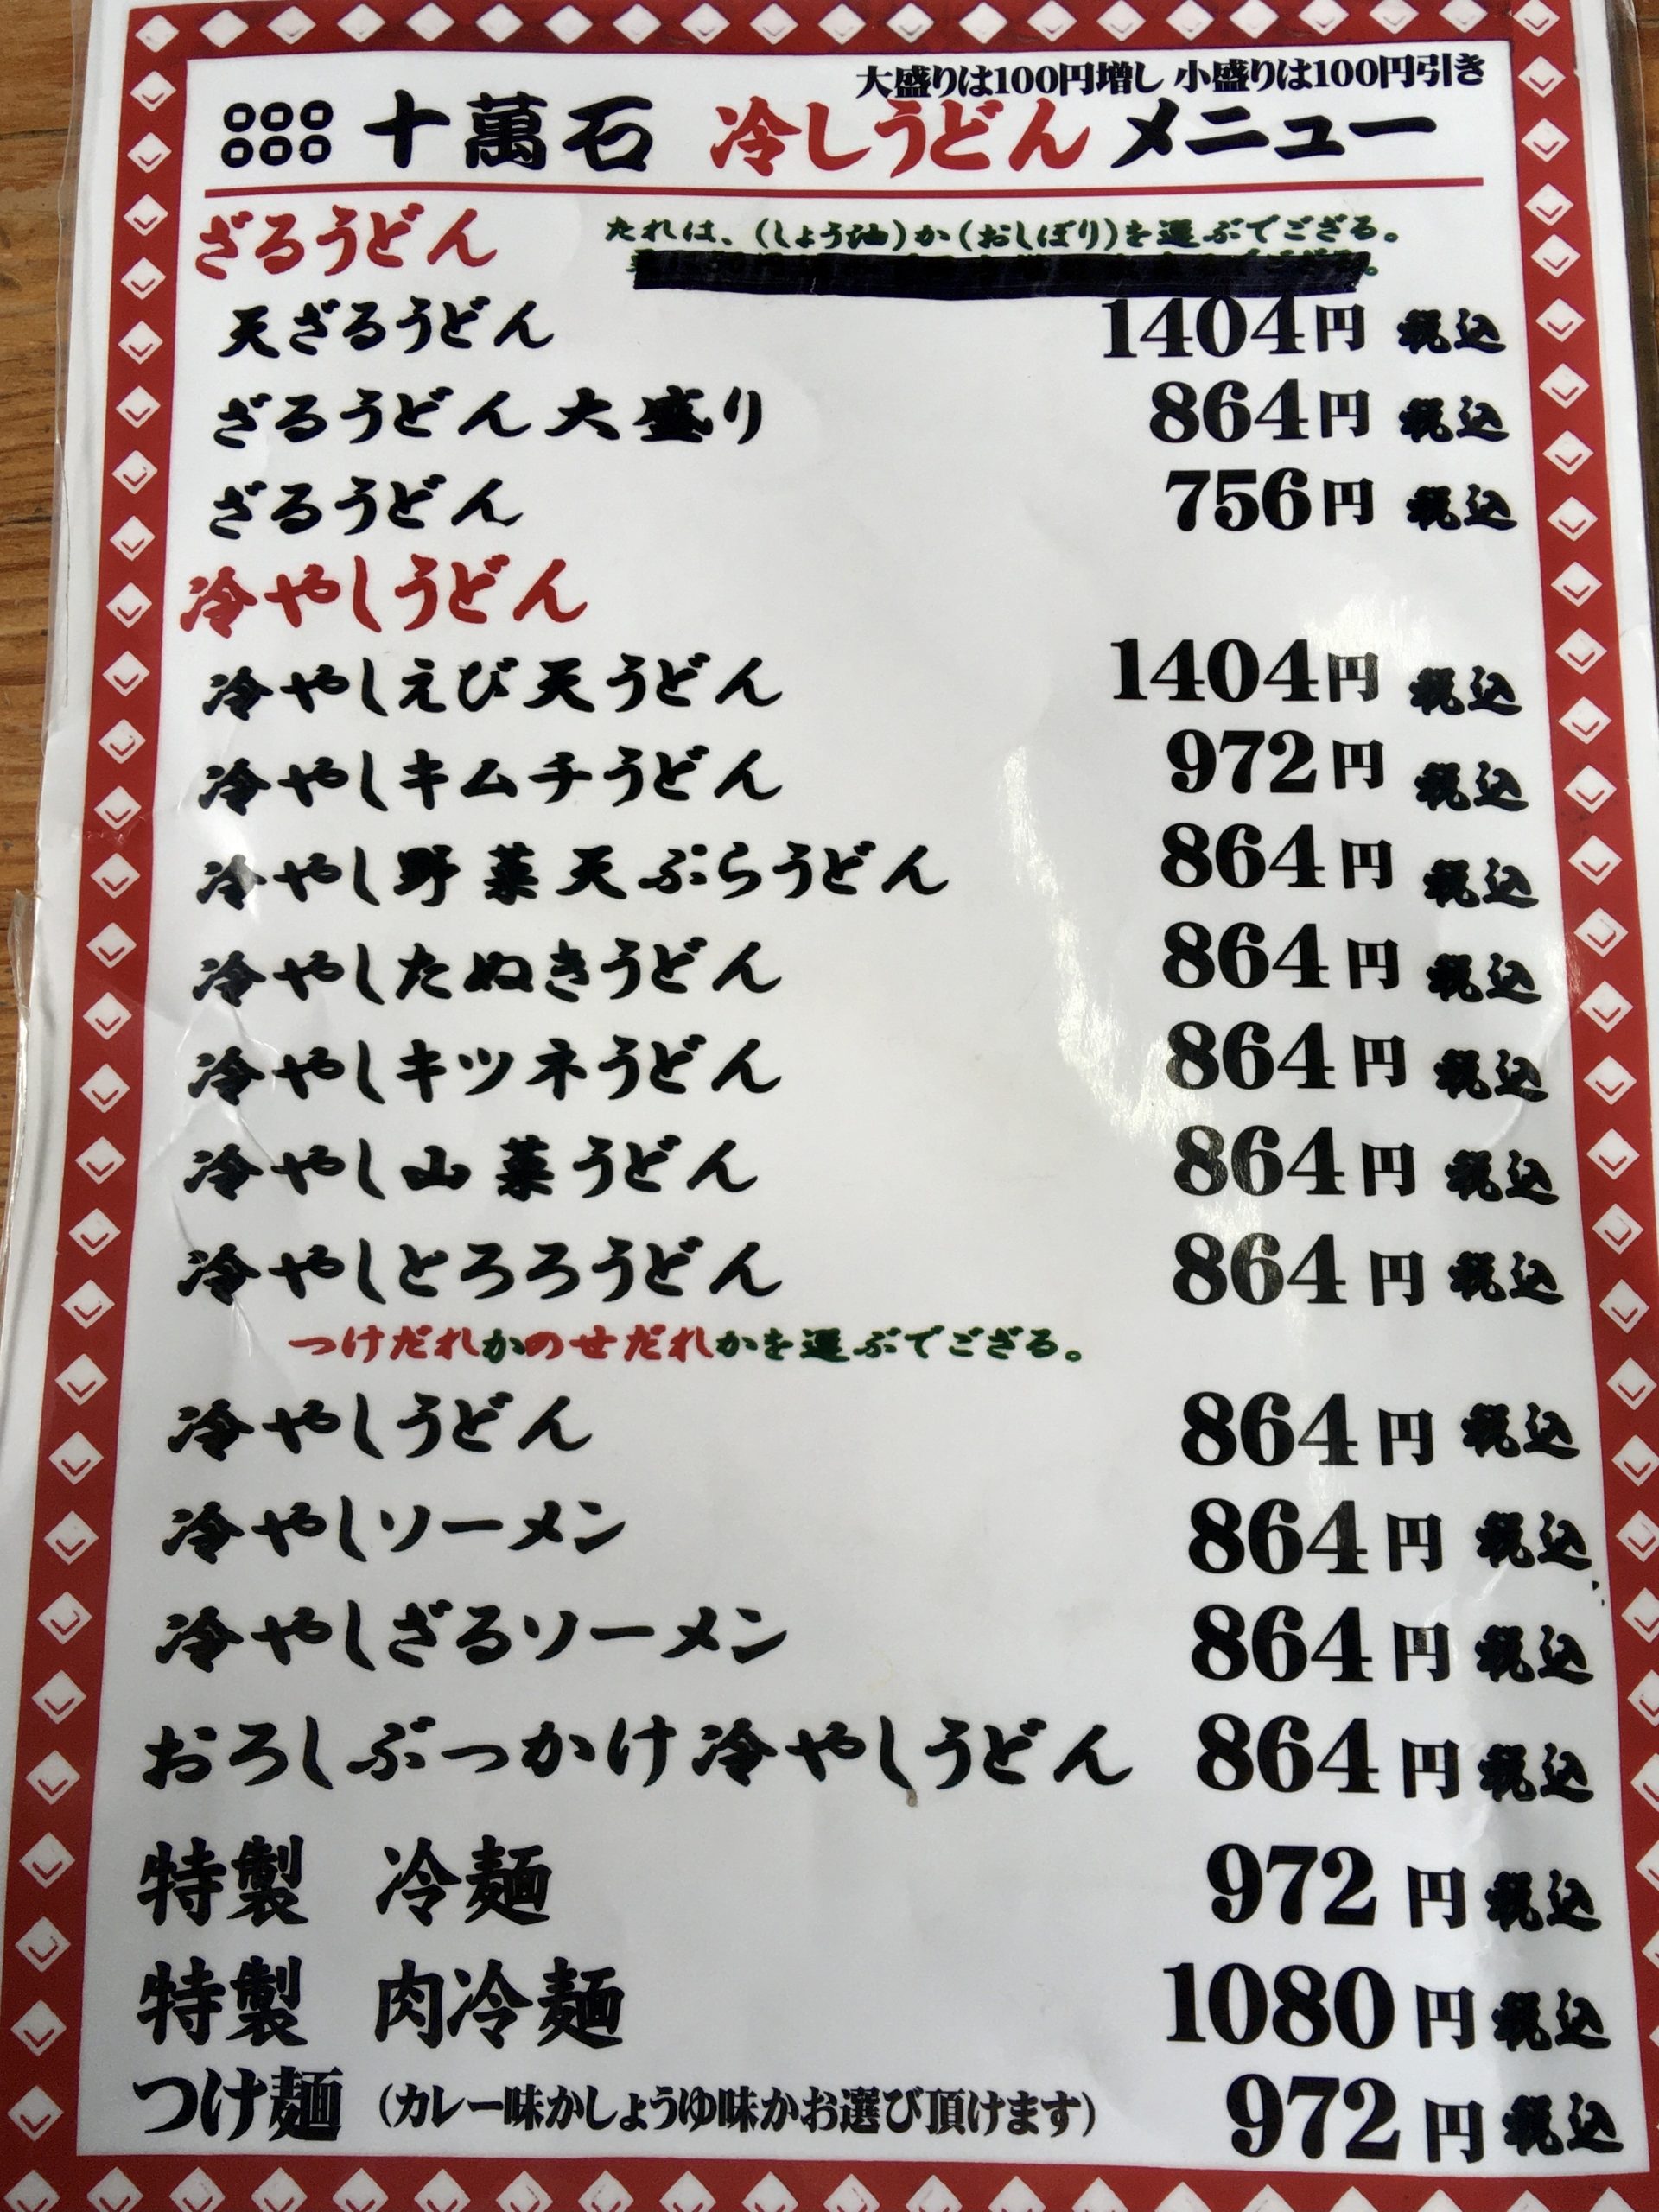 大盛りは100円増し 小盛りは100円引き
十萬石 冷しうどんメニュー
ざるうどん
たれは、(しょう油)か(おしぼり)を選ぶでござる。
天ざるうどん 1404円 税込
ざるうどん大盛り 864円 税込
ざるうどん 756円 税込
冷やしうどん
冷やしえび天うどん 1404円 税込
冷やしキムチうどん 972円 税込
冷やし野菜天ぷらうどん 864円 税込
冷やしたぬきうどん 864円 税込
冷やしキツネうどん 864円 税込
冷やし山菜うどん 864円 税込
冷やしとろろうどん 864円 税込
つけだれかのせだれかを選ぶでござる。
冷やしうどん 864円 税込
冷やしソーメン 864円 税込
冷やしざるソーメン 864円 税込
おろしぶっかけ冷やしうどん 864円 税込
特製 冷麺 972円 税込
特製 肉冷麺 1080円 税込
つけ麺 (カレー味かしょうゆ味かお選び頂けます) 972円 税込